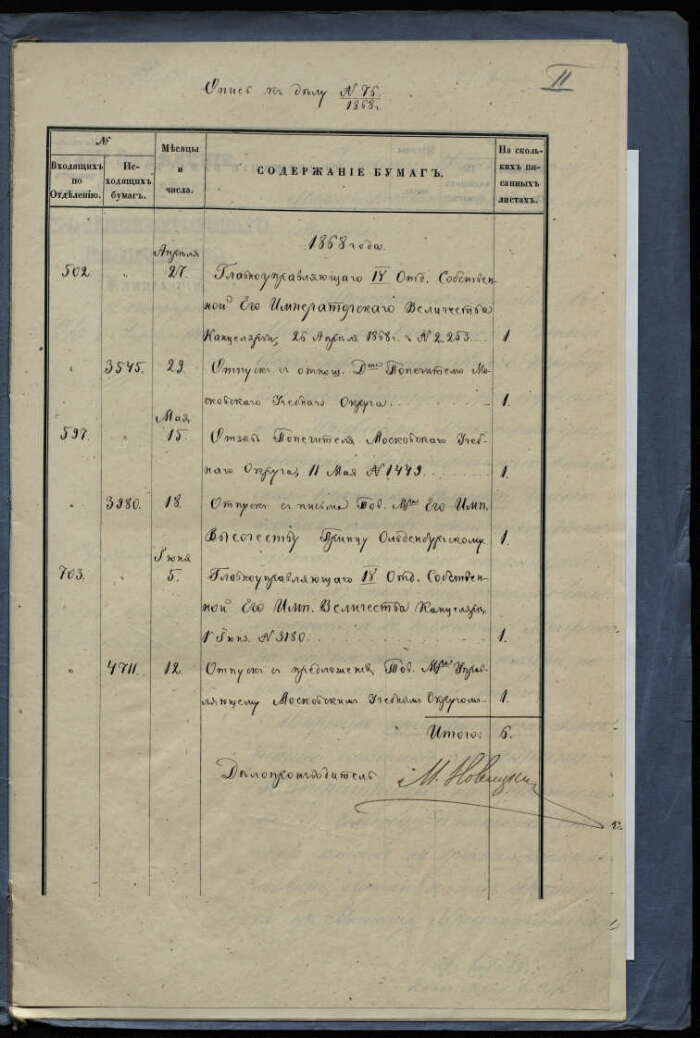 II
Опись къ дѣлу № 76.
1868 г.
№
Входящихъ по Отдѣленію.
Исходящихъ бумагъ.
Мѣсяцы и числа.
СОДЕРЖАНІЕ БУМАГЪ.
На сколькихъ писанныхъ листахъ.
1868 года.
Апрѣля
502. " 27. Главноуправляющаго IV Отд. Собствен-
ной Его Императорскаго Величества
Канцеляріи, 26 Апрѣля 1868 г. № 2.253. 1.
" 3545. 29. Отпускъ съ отнош. Попечителю Мо-
сковскаго Учебнаго Округа. 1.
Мая
597. " 15. Отзывъ Попечителя Московскаго Учеб-
наго Округа, 11 Мая № 1449. 1.
" 3980. 18. Отпускъ съ письма Тов. Мра Его Имп.
Высочеству Принцу Ольденбургскому. 1.
Іюня
703. " 5. Главноуправляющаго IV Отд. Собствен-
ной Его Имп. Величества Канцеляріи,
1 Іюня № 3180. 1.
" 4711. 12. Отпускъ съ предложенія Тов. Мра Управ-
ляющему Московскимъ Учебнымъ Округомъ. 1.
Итого: 6.
Дѣлопроизводитель М. Новицкій